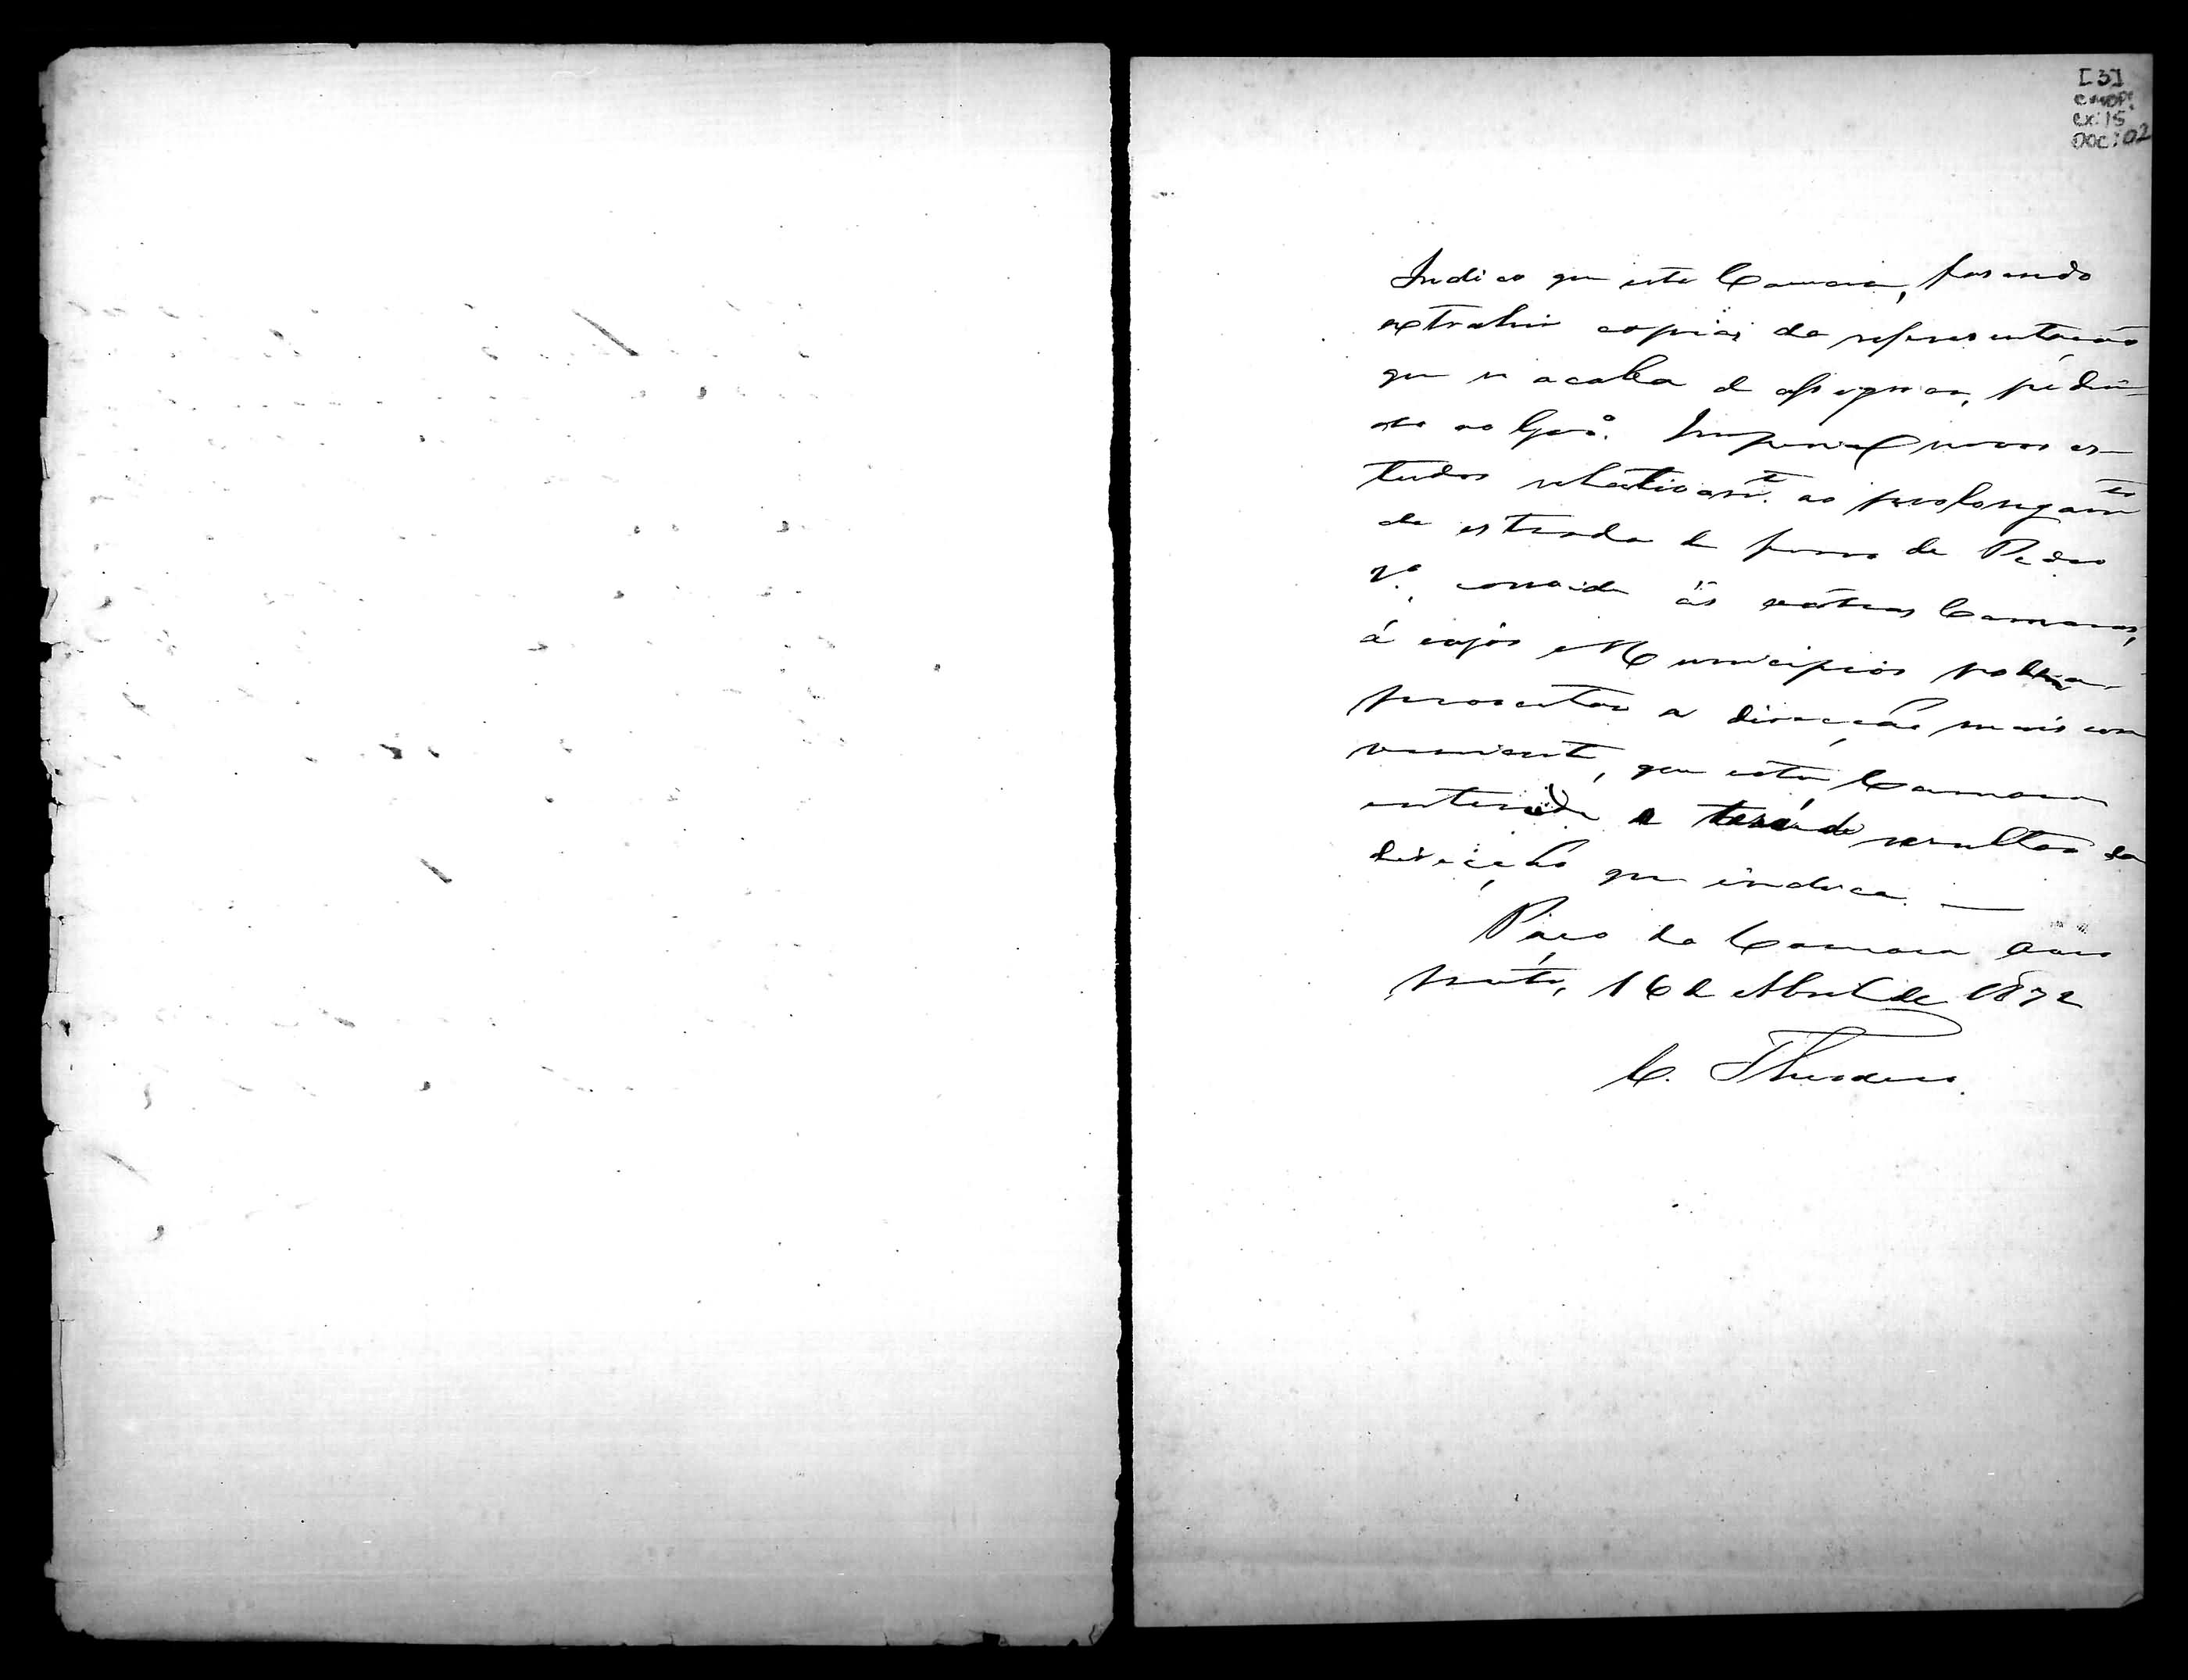 [3]
CMOP
cx: 15
DOC: 02
Indico que esta Camara, fasendo
extrahir copias da representação
que se acaba de assignar, pedin=
do ao Gov.º Imperial novos es-
tudos relativam.t ao prolongam.to
da estrada de ferro de Pedro
2.º, convide ás outras Camaras,
á cujos Municipios
a direcção mais con
veniente, que esta Camara
entende resultar da
direcção que indica. —
Paço da Camara Ouro
preto, 16 de Abril de 1872
C. Theodoro.